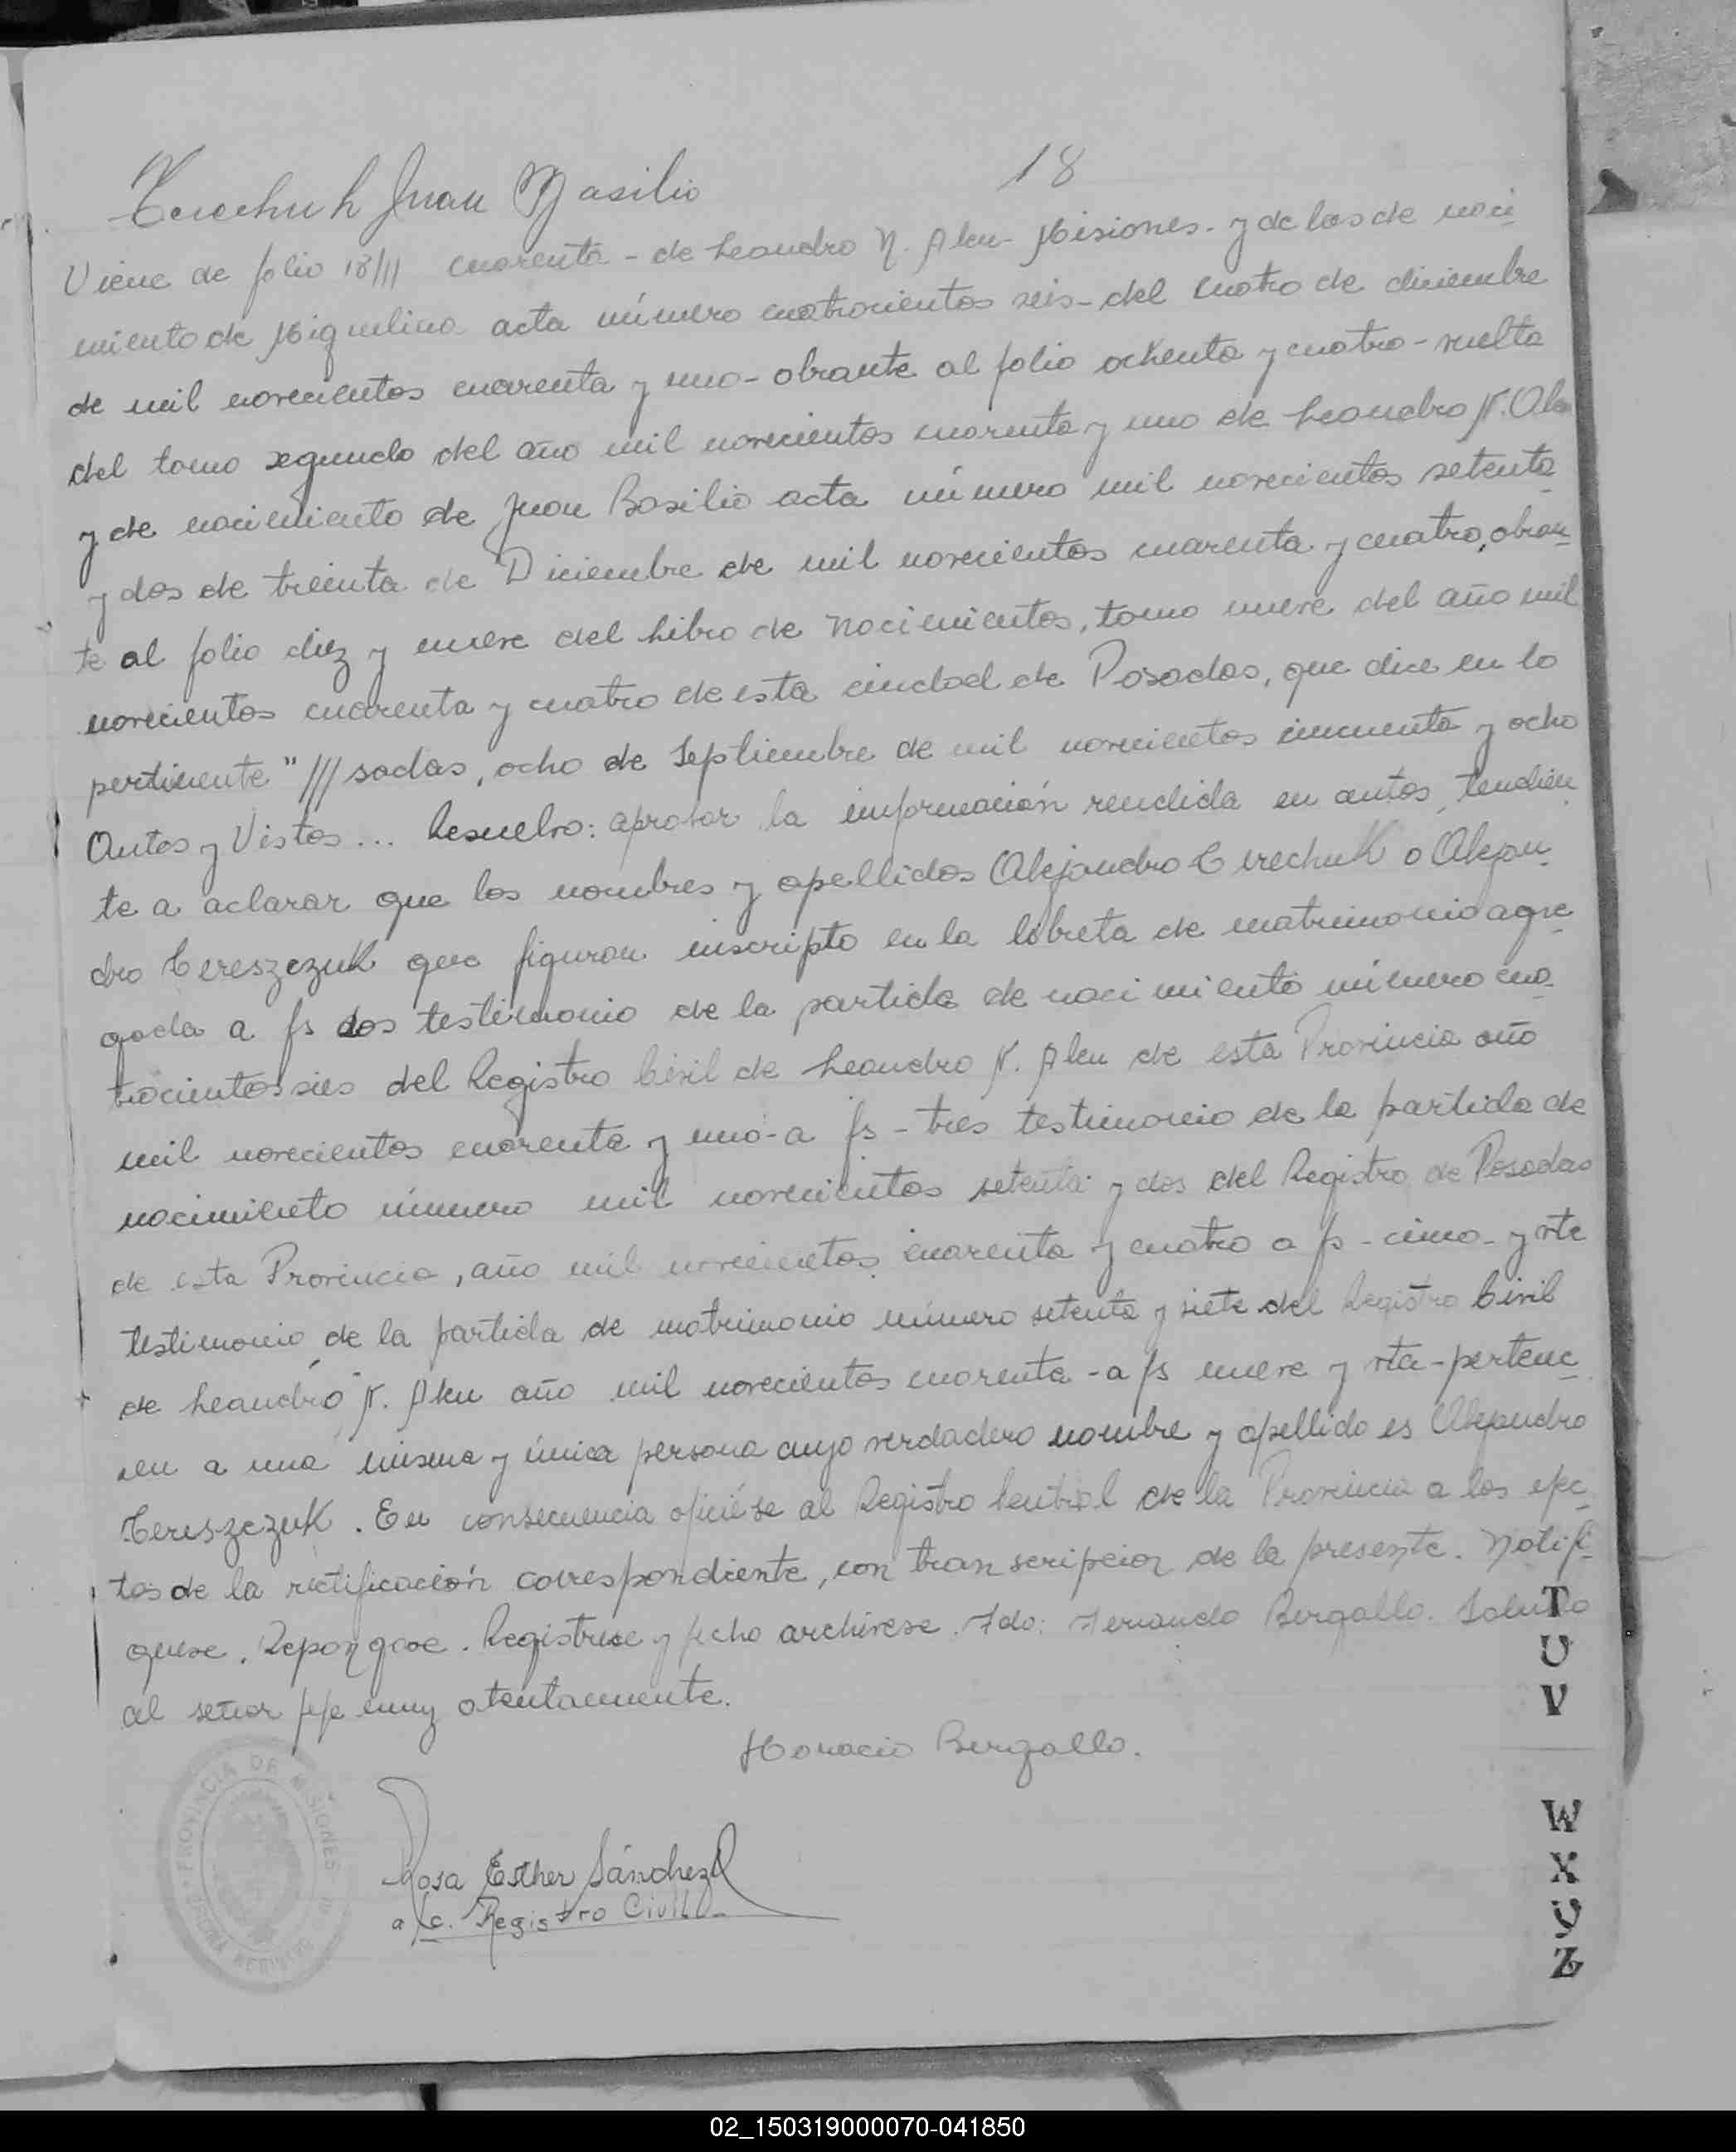 Terechuk Juan Basilio 18
Viene de folio 18/11 cuarenta - de Leandro N. Alem - Misiones - y de las de naci
miento de Miguelina acta número cuatrocientos seis - del cuatro de diciembre
de mil novecientos cuarenta y uno - obrante al folio ochenta y cuatro - vuelta
del tomo segundo del año mil novecientos cuarenta y uno de Leandro N. Alem
y de nacimiento de Juan Basilio acta número mil novecientos setenta
y dos de treinta de Diciembre de mil novecientos cuarenta y cuatro, obran-
te al folio diez y nueve del Libro de Nacimientos, tomo nueve del año mil
novecientos cuarenta y cuatro de esta ciudad de Posadas, que dice en lo
pertinente "///sadas, ocho de Septiembre de mil novecientos cincuenta y ocho
Autos y Vistos ... Resuelvo: aprobar la información rendida en autos, tendien
te a aclarar que los nombres y apellidos Alejandro Terechuk o Alejan-
dro Tereszczuk que figuran inscripto en la libreta de matrimonio agre-
gada a fs dos testimonio de la partida de nacimiento número cua-
trocientos sies del Registro Civil de Leandro N. Alem de esta Provincia año
mil novecientos cuarenta y uno - a fs - tres testimonio de la partida de
nacimiento número mil novecientos setenta y dos del Registro de Posadas
de esta Provincia, año mil novecientos cuarenta y cuatro a fs - cinco - y vta
testimonio de la partida de matrimonio número setenta y siete del Registro Civil
de Leandro N. Alem año mil novecientos cuarenta - a fs nueve y vta - pertene-
cen a una misma y única persona cuyo verdadero nombre y apellido es Alejandro
Tereszczuk. En consecuencia ofíciese al Registro Central de la Provincia a los efec-
tos de la rectificación correspondiente, con transcripcion de la presente. Notifi-
quese. Repongase. Registrese y fecho archívese. Fdo: Fernando Bergallo. Saludo
al señor jefe muy atentamente.
Horacio Bergallo.
PROVINCIA DE MISIONES
Rosa Esther Sánchez
a/c. Registro Civil
T
U
V
W
X
Y
Z
02_150319000070-041850